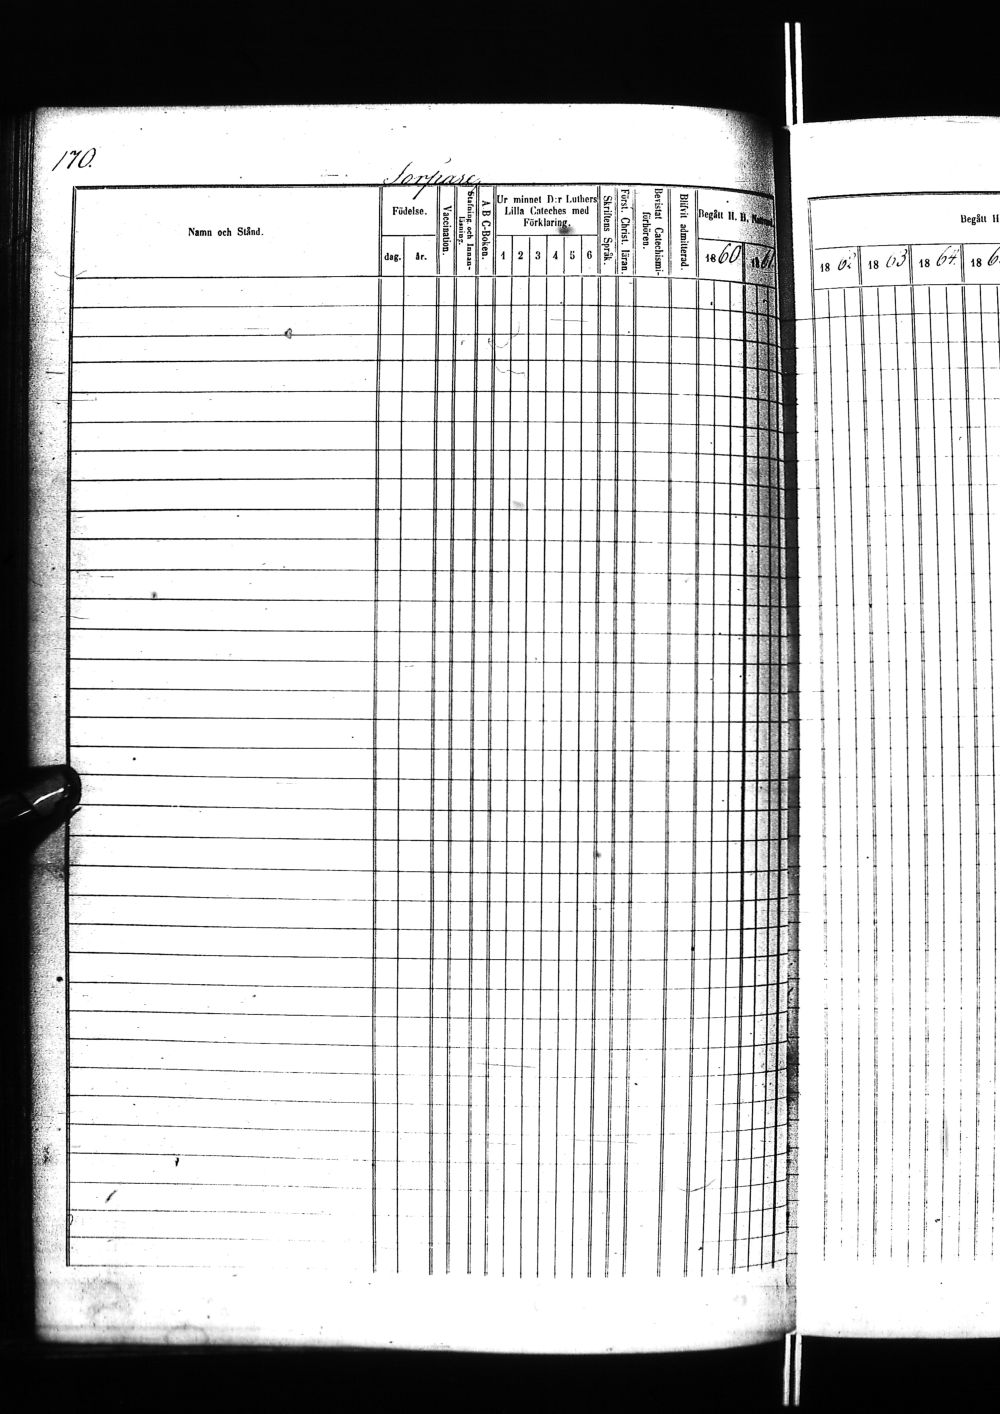 170.
Torpare
Namn och Stånd.
Födelse.
dag. år.
Vaccination.
Stafning och Innanläsning.
A B C-Boken.
Ur minnet D:r Luthers Lilla Cateches med Förklaring.
1 2 3 4 5 6
Skriftens Språk.
Först. Christ. läran.
Bevistat Catechismi-förhören.
Blifvit admitterad.
Begått H. H. Nattvard
1860 1861
Begått H
1862 1863 1864 186